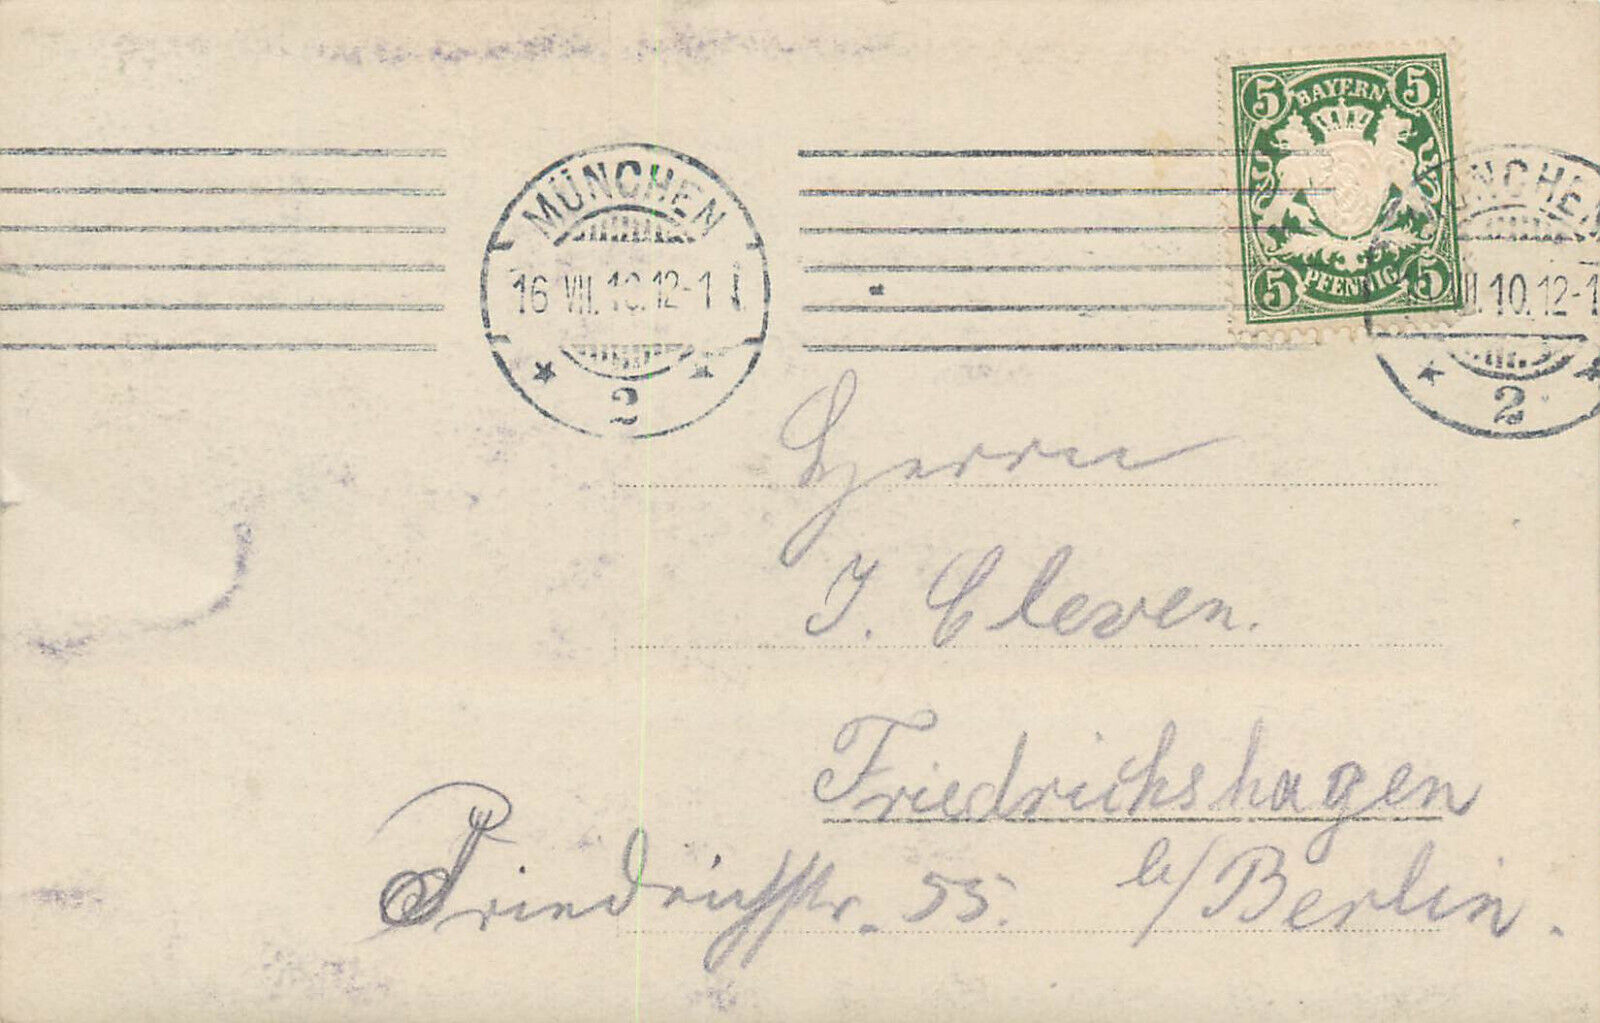 5 BAYERN 5
5 PFENNIG 5
MÜNCHEN
16 VII.10.12-1
2
MÜNCHEN
VII.10.12-1
2
Herrn
J. Cleven.
Friedrichshagen
b/Berlin.
Friedrichstr. 55.